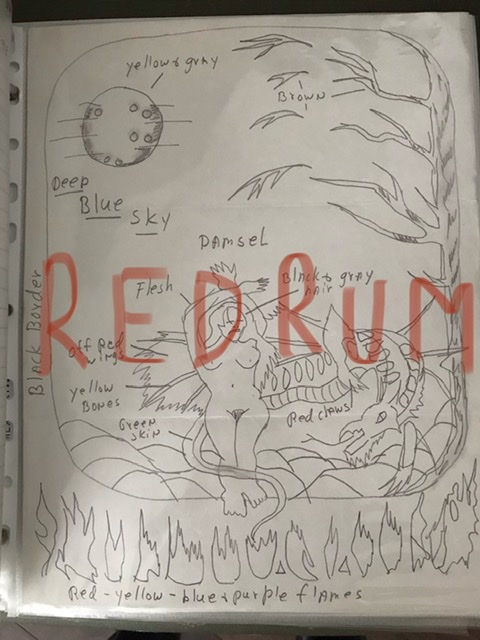 yellow & gray
Brown
Deep
Blue
Sky
DAMSEL
Flesh
Black & gray
hair
REDRUM
Black Border
Off Red
wings
yellow
Bones
Green
skin
Red claws
Red - yellow - blue & purple flames